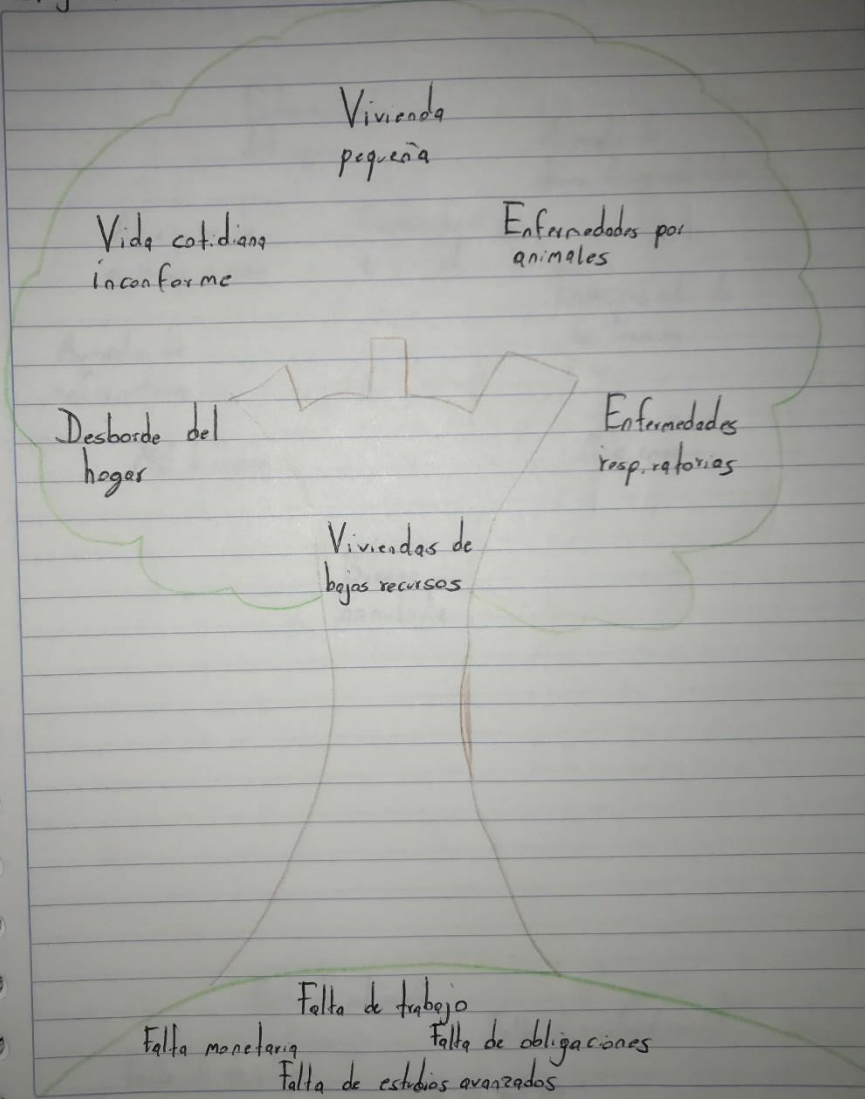 Vivienda
pequeña
Vida cotidiana
inconforme
Enfermedades por
animales
Desborde del
hogar
Enfermedades
respiratorias
Viviendas de
bajos recursos
Falta de trabajo
Falta monetaria
Falta de obligaciones
Falta de estudios avanzados